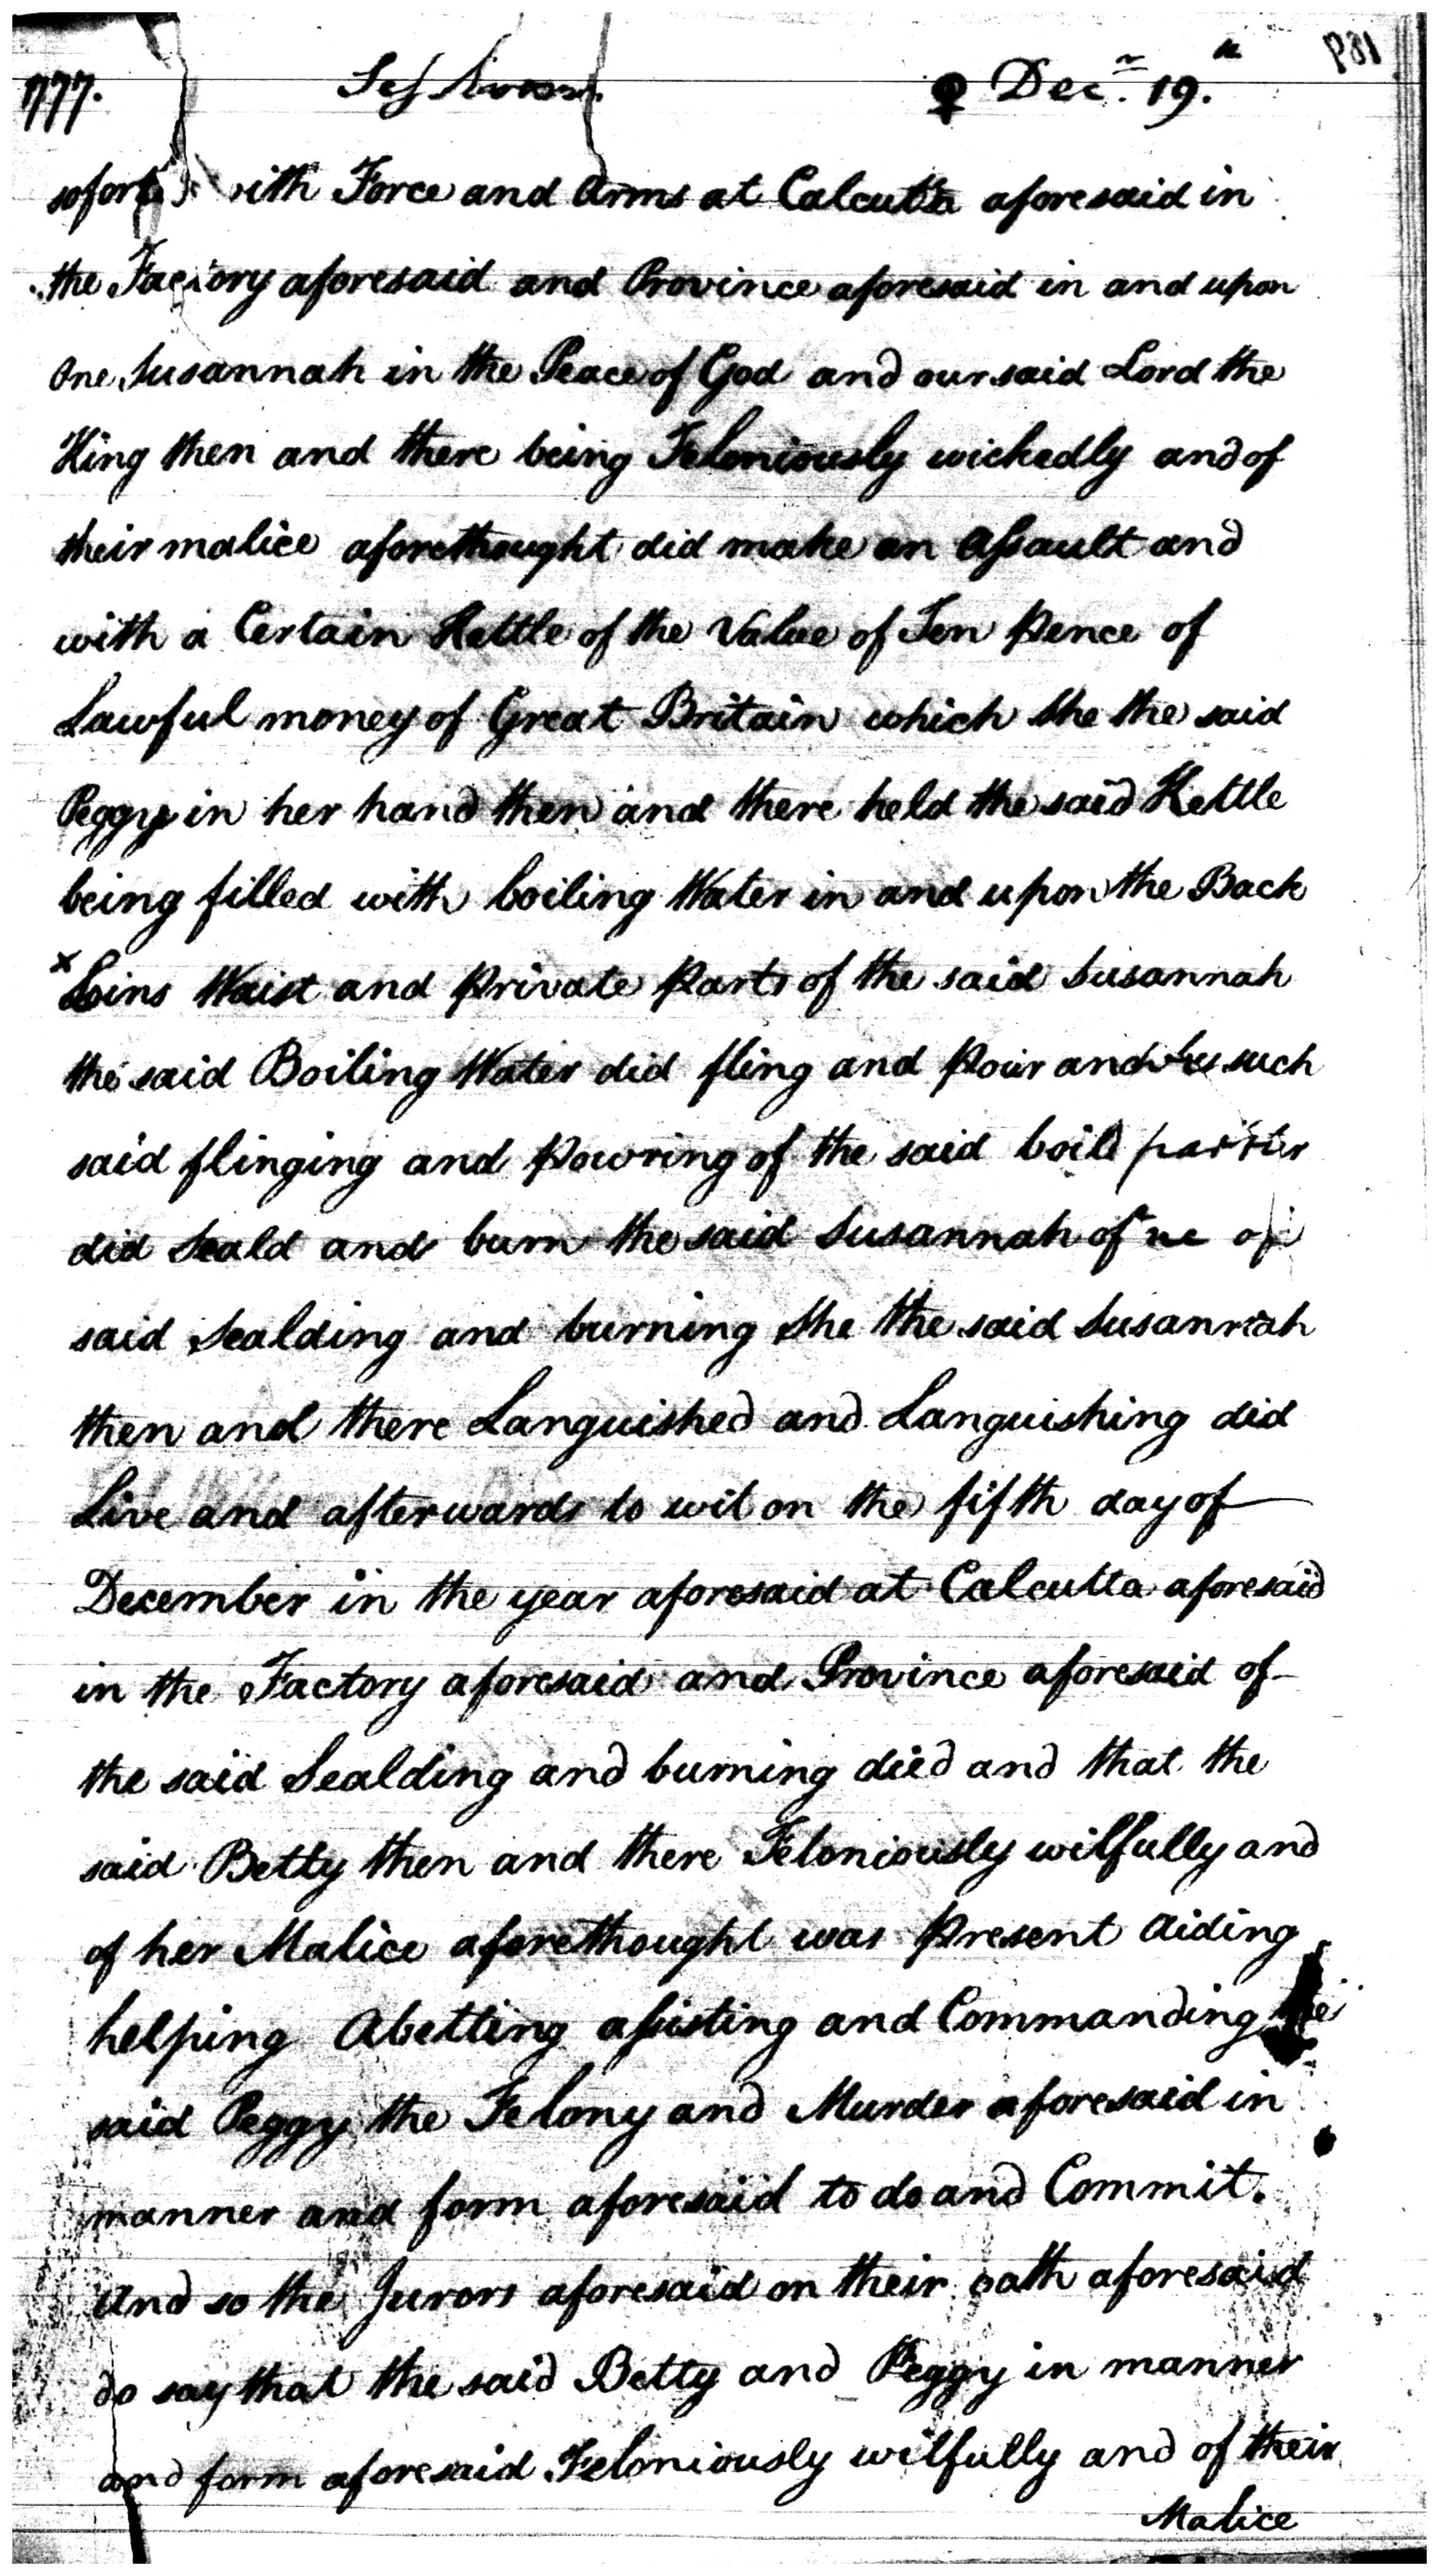 1777.
Sessions. ♀ Decr. 19.th
P81
with Force and Arms at Calcutta aforesaid in
the Factory aforesaid and Province aforesaid in and upon
One Susannah in the Peace of God and our said Lord the
King then and there being Feloniously wickedly and of
their malice aforethought did make an Assault and
with a Certain Kettle of the Value of Ten Pence of
Lawful money of Great Britain which She the said
Peggy in her hand then and there held the said Kettle
being filled with boiling Water in and upon the Back
x Loins Waist and Private Parts of the said Susannah
the said Boiling Water did fling and Pour and by such
said flinging and Powring of the said
did Scald and burn the said Susannah of
said Scalding and burning She the said Susannah
then and there Languished and Languishing did
Live and afterwards to wit on the fifth day of
December in the year aforesaid at Calcutta aforesaid
in the Factory aforesaid and Province aforesaid of
the said Scalding and burning died and that the
said Betty then and there Feloniously wilfully and
of her Malice aforethought was Present Aiding
helping Abetting assisting and Commanding the
said Peggy the Felony and Murder aforesaid in
manner and form aforesaid to do and Commit.
And so the Jurors aforesaid on their oath aforesaid
do say that the said Betty and Peggy in manner
and form aforesaid Feloniously wilfully and of their
Malice